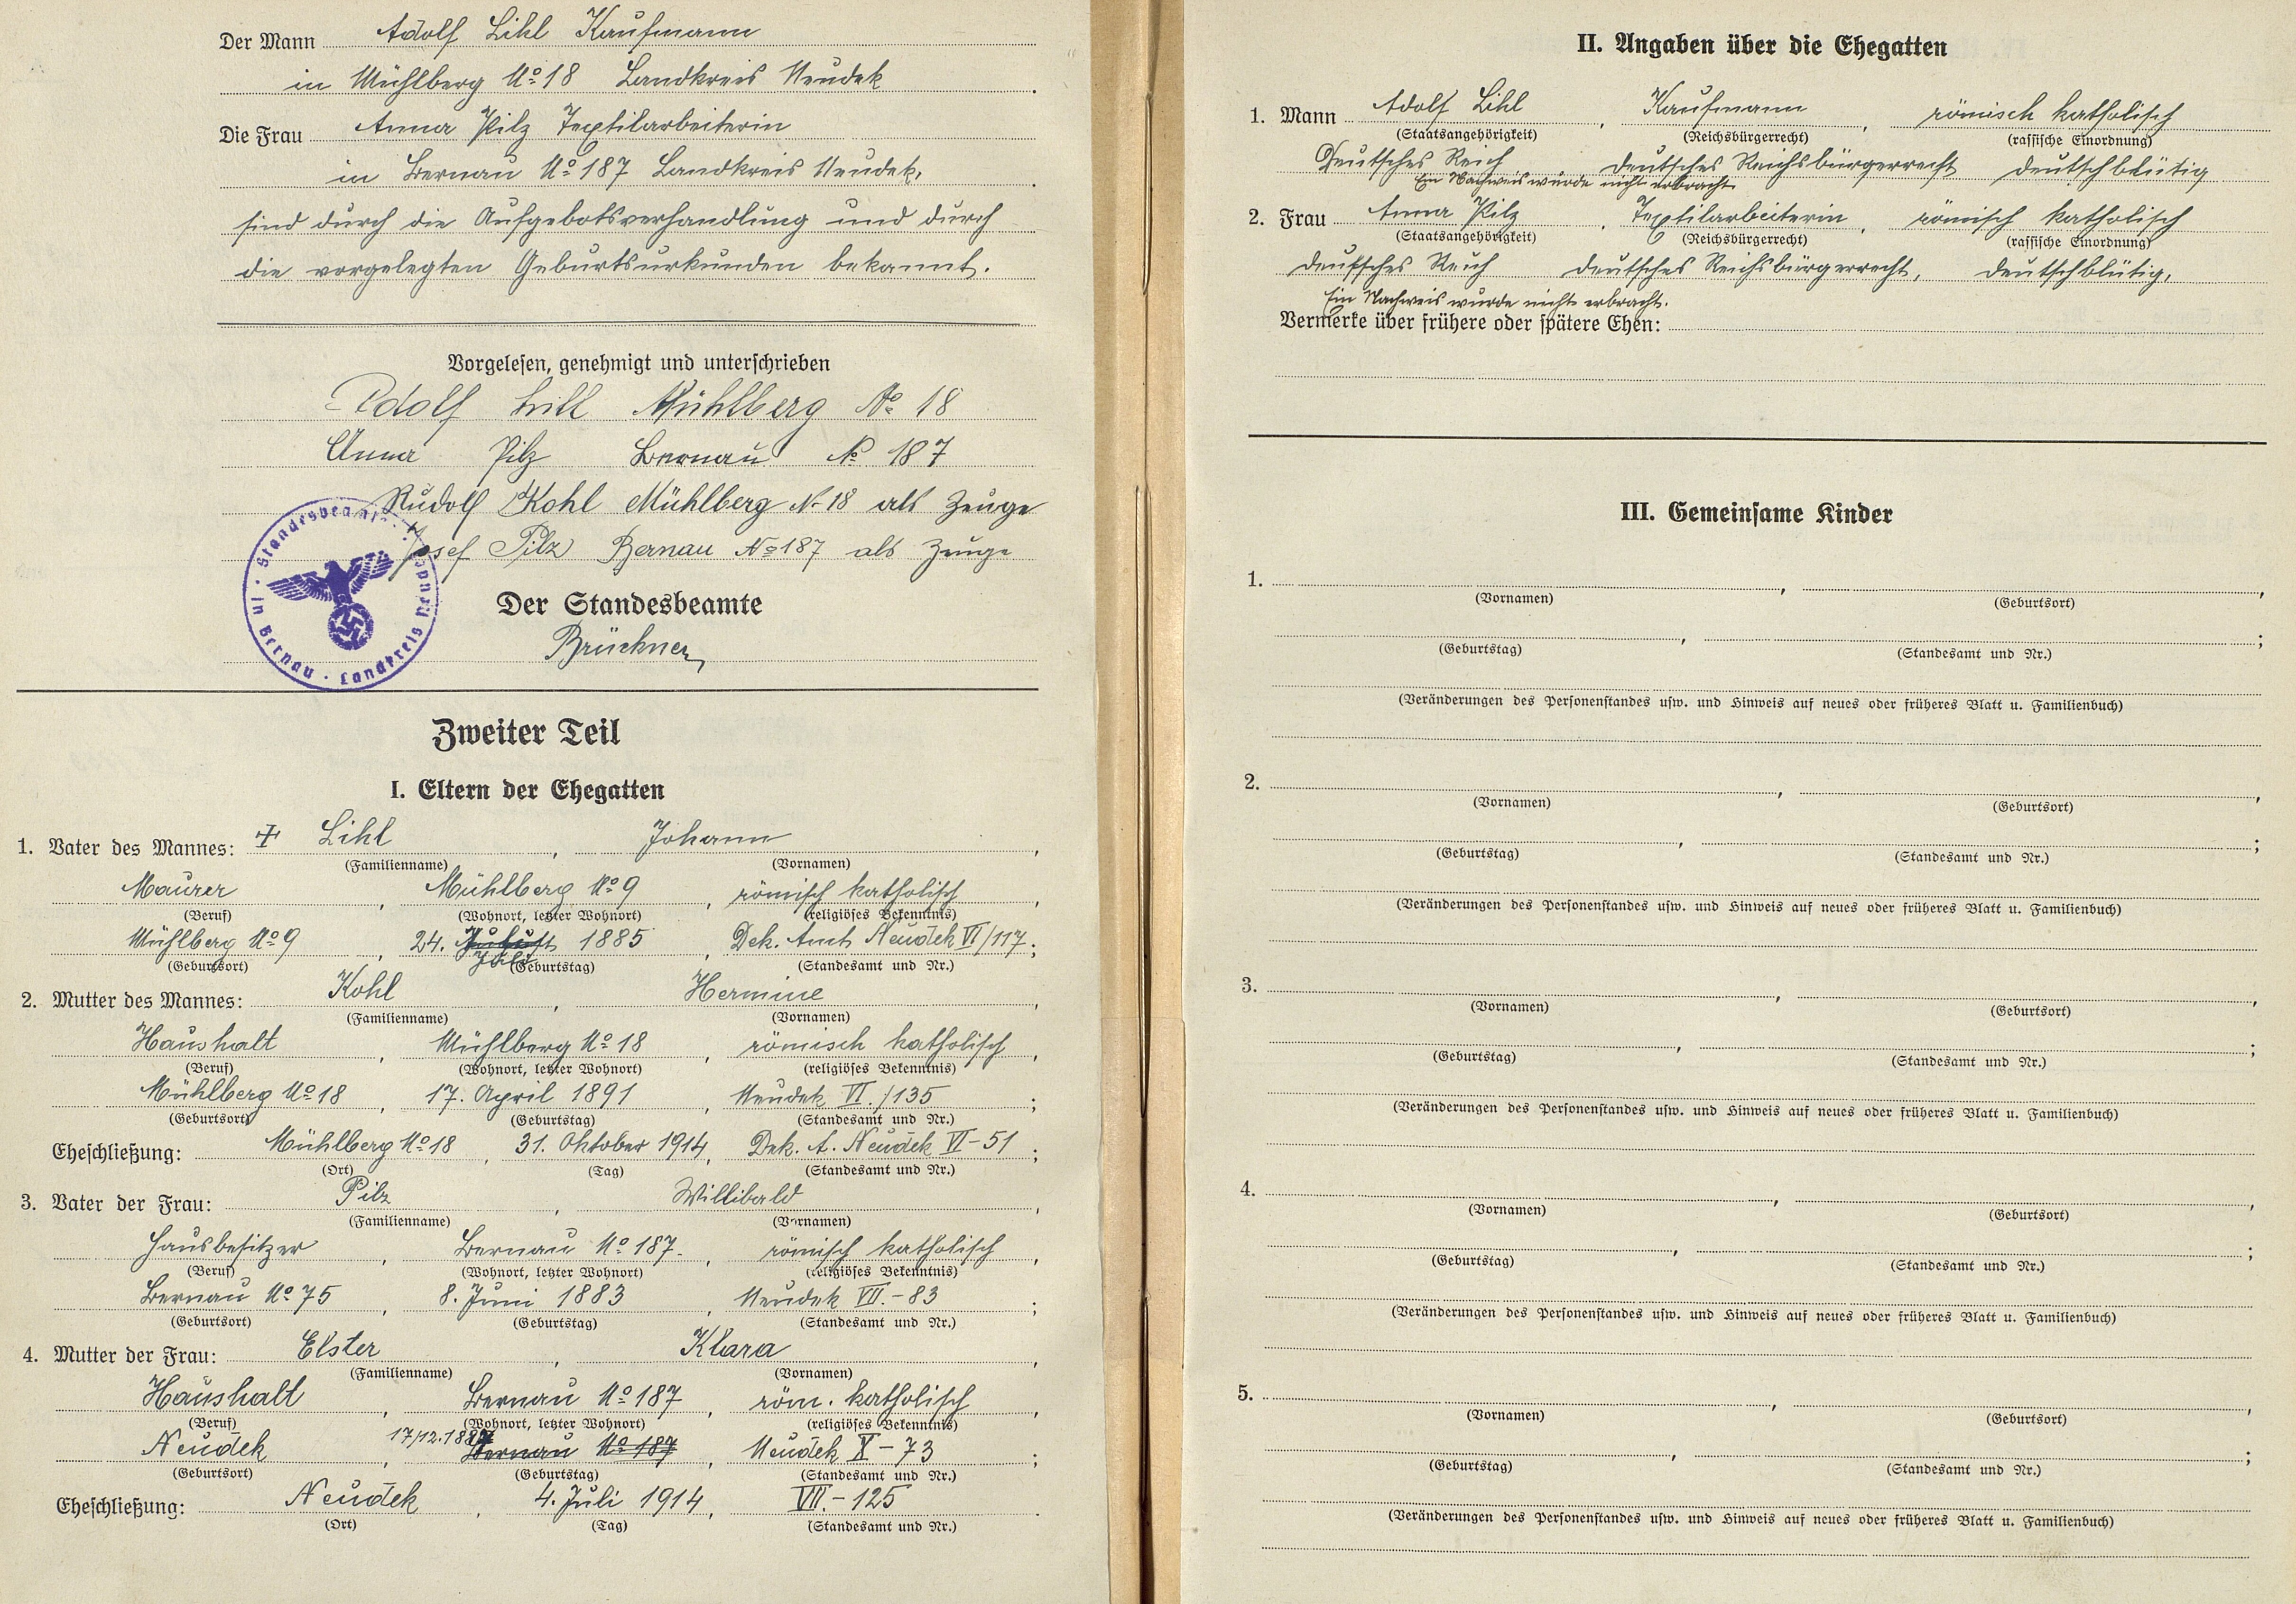 Der Mann Adolf Lihl Kaufmann
in Mühlberg No 18 Landkreis Neudek.
Die Frau Anna Pilz Textilarbeiterin
in Bernau No 187 Landkreis Neudek,
sind durch die Aufgebotsverhandlung und durch
die vorgelegten Geburtsurkunden bekannt.
Vorgelesen, genehmigt und unterschrieben
Adolf Lihl Mühlberg No 18
Anna Pilz Bernau No 187
Rudolf Kohl Mühlberg N. 18 als Zeuge
Josef Pilz Bernau No 187 als Zeuge
Standesbeamte in Bernau · Landkreis Neudek
Der Standesbeamte
Brückner
Zweiter Teil
I. Eltern der Ehegatten
1. Vater des Mannes: Lihl, Johann,
(Familienname) (Vornamen)
Maurer, Mühlberg No 9, römisch katholisch,
(Beruf) (Wohnort, letzter Wohnort) (religiöses Bekenntnis)
Mühlberg No 9, 24. August 1885, Dek. Amt Neudek VI/117;
Juli
(Geburtsort) (Geburtstag) (Standesamt und Nr.)
2. Mutter des Mannes: Kohl, Hermine,
(Familienname) (Vornamen)
Haushalt, Mühlberg No 18, römisch katholisch,
(Beruf) (Wohnort, letzter Wohnort) (religiöses Bekenntnis)
Mühlberg No 18, 17. April 1891, Neudek VI./135;
(Geburtsort) (Geburtstag) (Standesamt und Nr.)
Eheschließung: Mühlberg No 18, 31. Oktober 1914, Dek. A. Neudek VI-51;
(Ort) (Tag) (Standesamt und Nr.)
3. Vater der Frau: Pilz, Willibald,
(Familienname) (Vornamen)
Hausbesitzer, Bernau No 187., römisch katholisch,
(Beruf) (Wohnort, letzter Wohnort) (religiöses Bekenntnis)
Bernau No 75, 8. Juni 1883, Neudek VII.-83;
(Geburtsort) (Geburtstag) (Standesamt und Nr.)
4. Mutter der Frau: Elster, Klara,
(Familienname) (Vornamen)
Haushalt, Bernau No 187, röm. katholisch,
(Beruf) (Wohnort, letzter Wohnort) (religiöses Bekenntnis)
Neudek, Bernau No 187, Neudek X-73;
(Geburtsort) (Geburtstag) (Standesamt und Nr.)
Eheschließung: Neudek, 4. Juli 1914, VII.-125.
(Ort) (Tag) (Standesamt und Nr.)
II. Angaben über die Ehegatten
1. Mann Adolf Lihl, Kaufmann, römisch katholisch
(Staatsangehörigkeit) (Reichsbürgerrecht) (rassische Einordnung)
Deutsches Reich deutsches Reichsbürgerrecht deutschblütig
Ein Nachweis wurde nicht erbracht
2. Frau Anna Pilz, Textilarbeiterin, römisch katholisch
(Staatsangehörigkeit) (Reichsbürgerrecht) (rassische Einordnung)
deutsches Reich deutsches Reichsbürgerrecht, deutschblütig,
Ein Nachweis wurde nicht erbracht.
Vermerke über frühere oder spätere Ehen:
III. Gemeinsame Kinder
1. , ,
(Vornamen) (Geburtsort)
, ;
(Geburtstag) (Standesamt und Nr.)
(Veränderungen des Personenstandes usw. und Hinweis auf neues oder früheres Blatt u. Familienbuch)
2. , ,
(Vornamen) (Geburtsort)
, ;
(Geburtstag) (Standesamt und Nr.)
(Veränderungen des Personenstandes usw. und Hinweis auf neues oder früheres Blatt u. Familienbuch)
3. , ,
(Vornamen) (Geburtsort)
, ;
(Geburtstag) (Standesamt und Nr.)
(Veränderungen des Personenstandes usw. und Hinweis auf neues oder früheres Blatt u. Familienbuch)
4. , ,
(Vornamen) (Geburtsort)
, ;
(Geburtstag) (Standesamt und Nr.)
(Veränderungen des Personenstandes usw. und Hinweis auf neues oder früheres Blatt u. Familienbuch)
5. , ,
(Vornamen) (Geburtsort)
, ;
(Geburtstag) (Standesamt und Nr.)
(Veränderungen des Personenstandes usw. und Hinweis auf neues oder früheres Blatt u. Familienbuch)